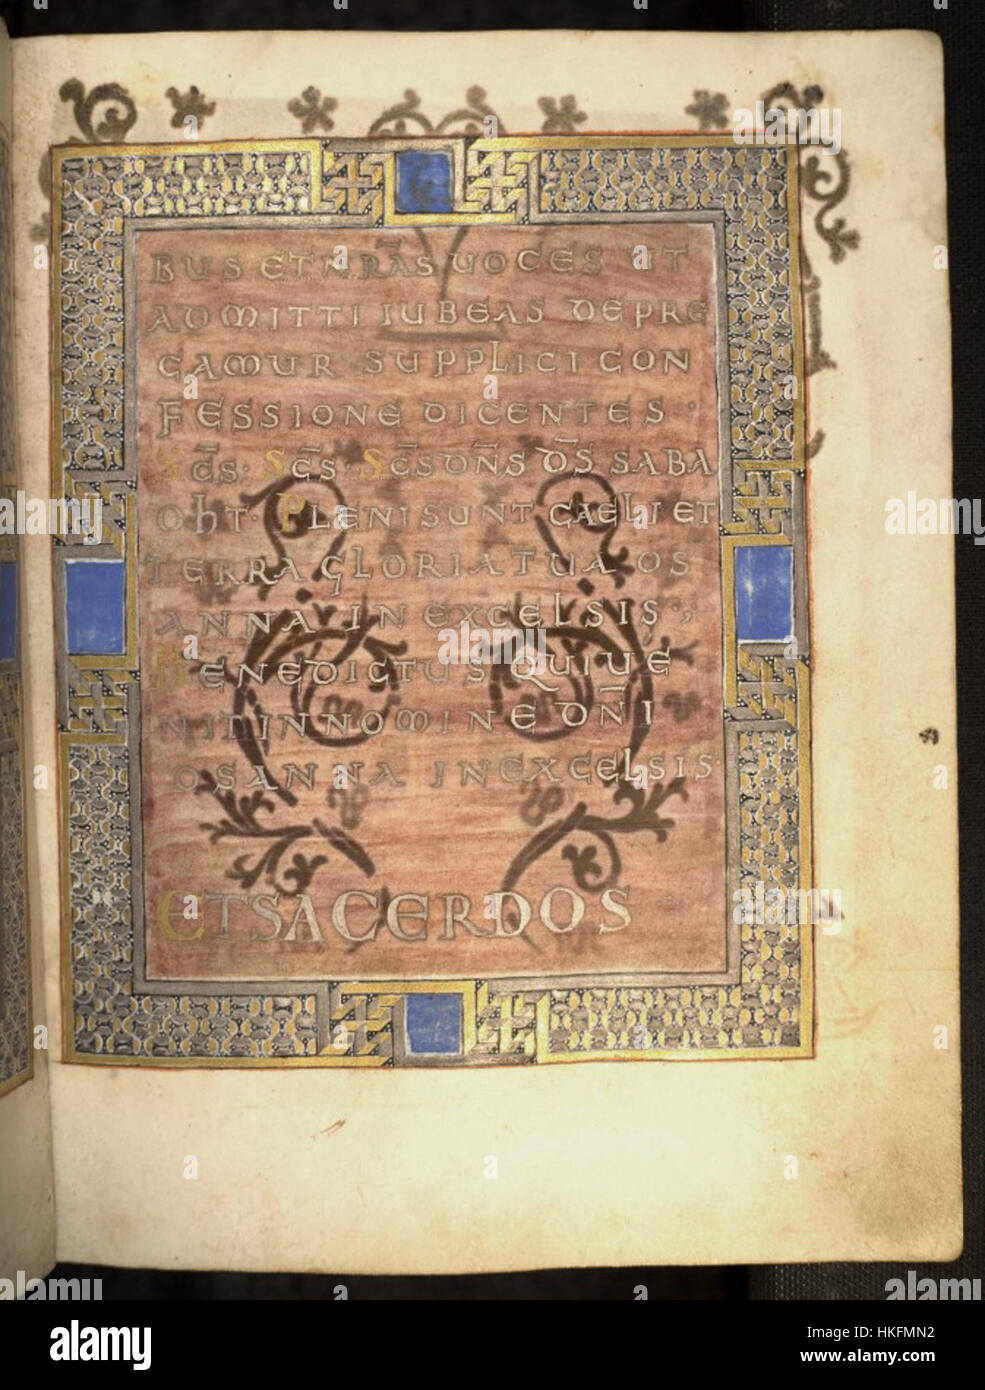 BUS ET N̄RĀS UOCES UT
ADMITTI IUBEAS DEPRE
CAMUR · SUPPLICI CON
FESSIONE DICENTES ·
SC̄S · SC̄S · SC̄S DN̄S DS̄ SABA
OhT · PLENI SUNT CAELI ET
TERRA GLORIA TUA OS
ANNA IN EXCELSIS ;
BENEDICTUS QUI UE
NIT IN NOMINE DN̄I
OSANNA IN EXCELSIS ·
ET SACERDOS
alamy
Image ID: HKFMN2
www.alamy.com